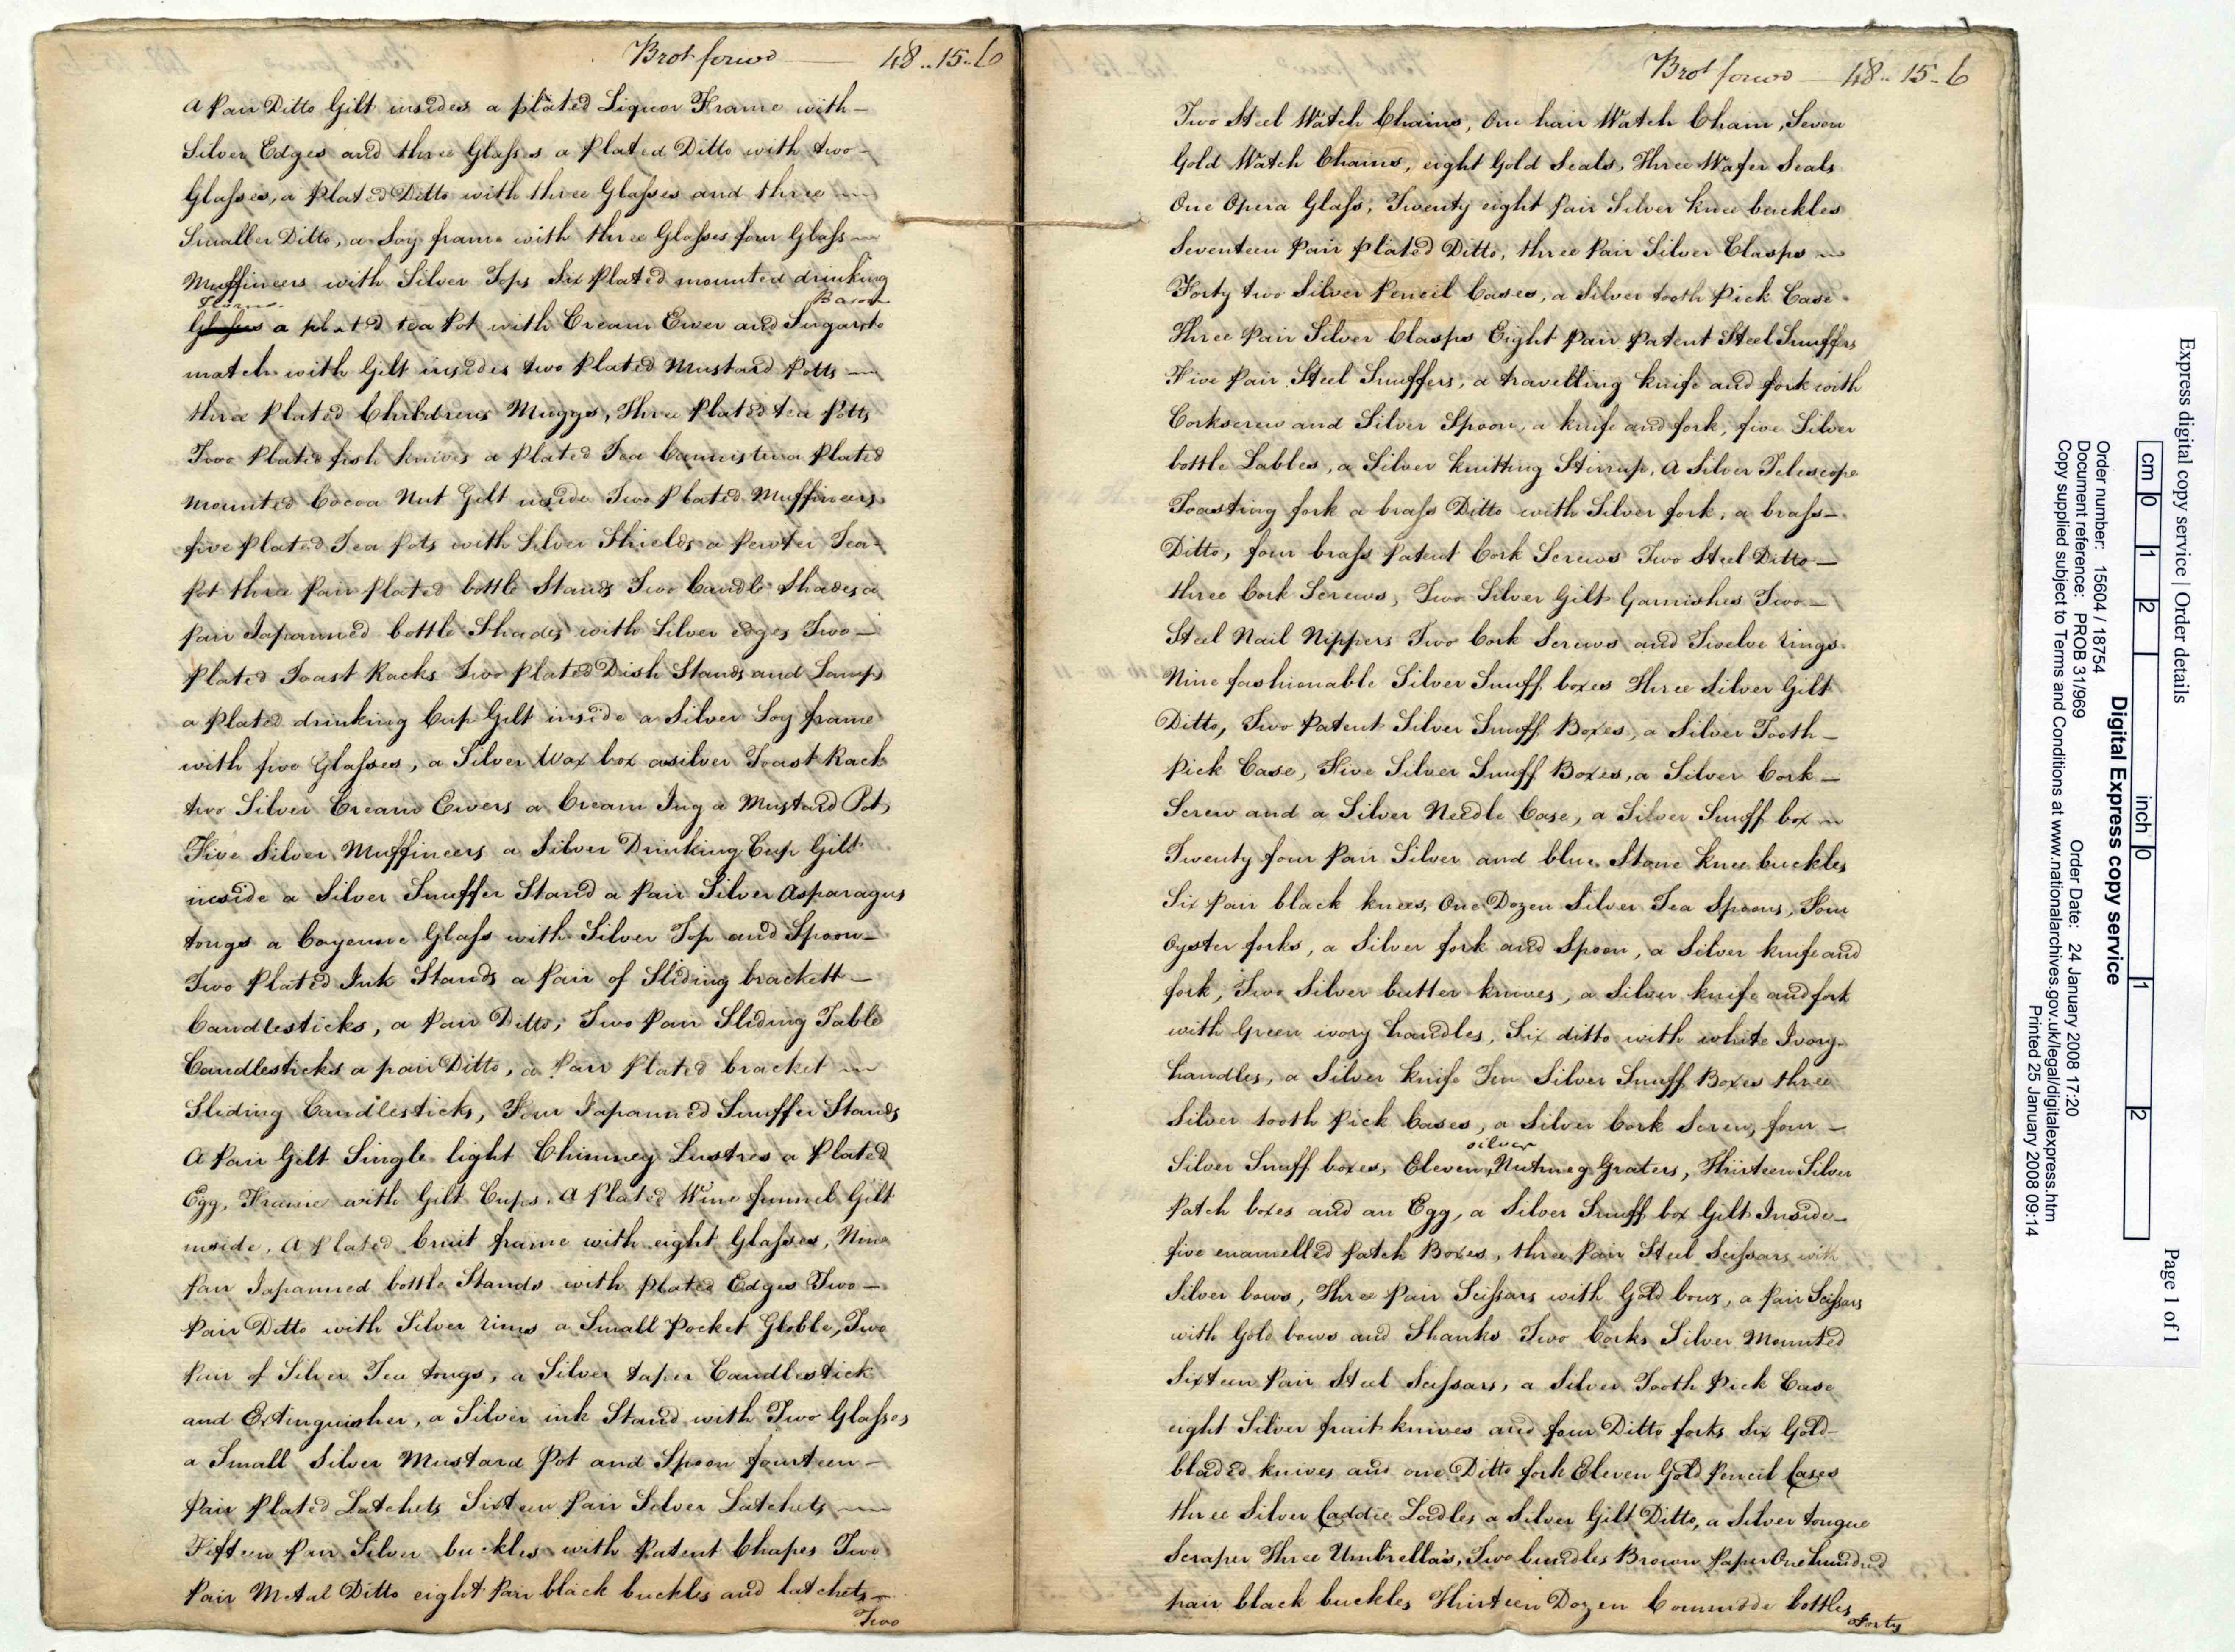 Brot forwd — 48..15..6
A Pair Ditto Gilt insides a plated Liquor Frame with —
Silver Edges and three Glasses a Plated Ditto with two —
Glasses, a Plated Ditto with three Glasses and three
Smaller Ditto, a Soy frame with three Glasses four Glass
Muffineers with Silver Tops Six Plated mounted drinking
Horns Bason
Glasses a plated tea Pot with Cream Ewer and Sugar to
match with Gilt insides two Plated Mustard Potts
three Plated Childrens Muggs, Three Plated tea Potts
Two Plated fish knives a Plated Tea Cannister a Plated
Mounted Cocoa Nut Gilt inside Two Plated Muffineers
five Plated Tea Pots with Silver Shields a Pewter Tea-
Pot three Pair Plated bottle Stands Two Candle Shades a
Pair Japanned bottle Shades with Silver edges Two —
Plated Toast Racks Two Plated Dish Stands and Lamps
a Plated drinking Cup Gilt inside a Silver Soy frame
with five Glasses, a Silver Wax box a silver Toast Rack
two Silver Cream Ewers a Cream Jug a Mustard Pot,
Five Silver Muffineers a Silver Drinking Cup Gilt
inside a Silver Snuffer Stand a Pair Silver Asparagus
tongs a Cayenne Glass with Silver Top and Spoon —
Two Plated Ink Stands a Pair of Sliding brackett —
Candlesticks, a Pair Ditto, Two Pair Sliding Table
Candlesticks a pair Ditto, a Pair Plated bracket
Sliding Candlesticks, Four Japanned Snuffer Stands
A Pair Gilt Single light Chimney Lustres a Plated
Egg, Frame with Gilt Cups. A Plated Wine funnel Gilt
inside, A Plated Cruit frame with eight Glasses, Nine
Pair Japanned bottle Stands with plated Edges Two —
Pair Ditto with Silver rims a Small Pocket Globle, Two
Pair of Silver Tea tongs, a Silver taper Candlestick
and Extinguisher, a Silver ink Stand with Two Glasses
a Small Silver Mustard Pot and Spoon fourteen —
Pair Plated Latchets Sixteen Pair Silver Latchets
Fifteen Pair Silver buckles with Patent Chapes Two
Pair Metal Ditto eight Pair black buckles and latchets
Two
Brot forwd — 48..15..6
Two Steel Watch Chains, One hair Watch Chain, Seven
Gold Watch Chains, eight Gold Seals, Three Wafer Seals
One Opera Glass, Twenty eight Pair Silver knee buckles
Seventeen Pair plated Ditto, three Pair Silver Clasps
Forty two Silver Pencil Cases, a Silver tooth Pick Case
Three Pair Silver Clasps Eight Pair Patent Steel Snuffers
Five Pair Steel Snuffers, a travelling knife and fork with
Corkscrew and Silver Spoon, a knife and fork, five Silver
bottle Lables, a Silver knitting Stirrup, A Silver Telescope
Toasting fork a brass Ditto with Silver fork, a brass —
Ditto, four brass Patent Cork Screws Two Steel Ditto —
three Cork Screws, Two Silver Gilt Garnishes Two —
Steel Nail Nippers Two Cork Screws and Twelve rings
Nine fashionable Silver Snuff boxes Three Silver Gilt
Ditto, Two Patent Silver Snuff Boxes, a Silver Tooth —
Pick Case, Five Silver Snuff Boxes, a Silver Cork —
Screw and a Silver Needle Case, a Silver Snuff box
Twenty four Pair Silver and blue Stone knee buckles
Six Pair black knees, One Dozen Silver Tea Spoons, Four
Oyster forks, a Silver fork and Spoon, a Silver knife and
fork, Two Silver butter knives, a Silver knife and fork
with Green ivory handles, Six ditto with white Ivory
handles, a Silver knife Ten Silver Snuff Boxes three
Silver tooth Pick Cases, a Silver Cork Screw, four —
silver
Silver Snuff boxes, Eleven Nutmeg Graters, Thirteen Silver
Patch boxes and an Egg, a Silver Snuff box Gilt Inside
five enamelled Patch Boxes, three Pair Steel Scissars with
Silver bows, Three Pair Scissars with Gold bows, a Pair Scissars
with Gold bows and Shanks Two Corks Silver Mounted
Sixteen Pair Steel Scissars, a Silver Tooth Pick Case
eight Silver fruit knives and four Ditto forks Six Gold-
bladed knives and one Ditto fork Eleven Gold Pencil Cases
three Silver Caddie Ladles a Silver Gilt Ditto, a Silver tongue
Scraper Three Umbrella's, Two bundles Brown Paper One hundred
pair black buckles Thirteen Dozen Commode bottles
Forty
Express digital copy service | Order details Page 1 of 1
cm 0 1 2 inch 0 1 2
Digital Express copy service
Order number: 15604 / 18754 Order Date: 24 January 2008 17:20
Document reference: PROB 31/969
Copy supplied subject to Terms and Conditions at www.nationalarchives.gov.uk/legal/digitalexpress.htm
Printed 25 January 2008 09:14